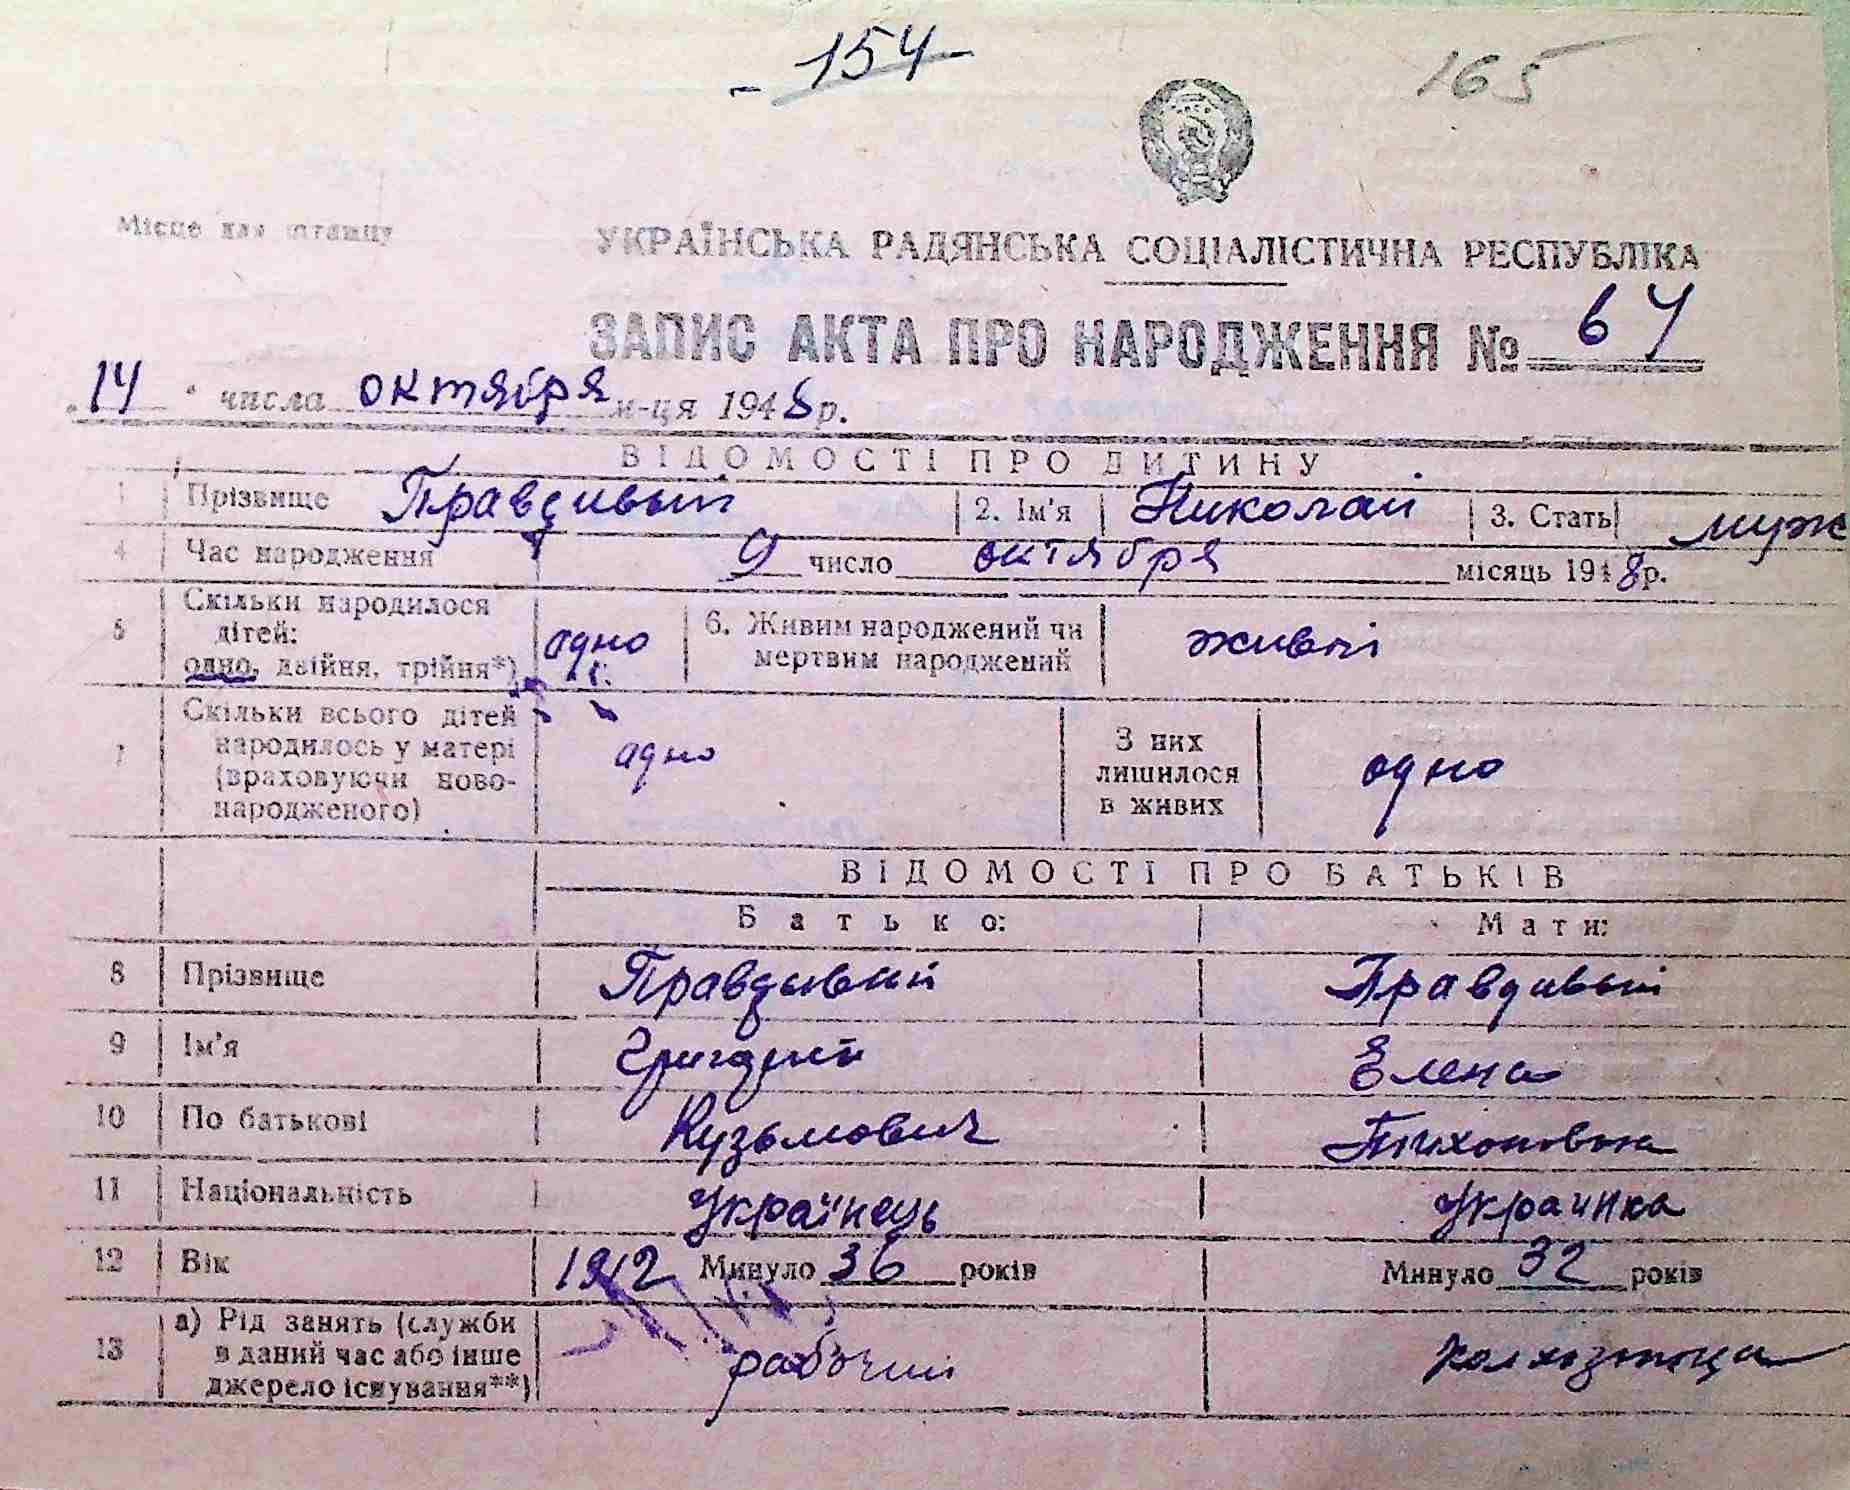 - 154 -
165
Місце для штампу
УКРАЇНСЬКА РАДЯНСЬКА СОЦІАЛІСТИЧНА РЕСПУБЛІКА
ЗАПИС АКТА ПРО НАРОДЖЕННЯ № 64
„14" числа октября м-ця 1948 р.
ВІДОМОСТІ ПРО ДИТИНУ
1 Прізвище Правдивый 2. Ім'я Николай 3. Стать муж
4 Час народження 9 число октября місяць 1948 р.
5 Скільки народилося
дітей:
одно, двійня, трійня*)
одно
6. Живим народжений чи
мертвим народжений
живый
7 Скільки всього дітей
народилось у матері
(враховуючи ново-
народженого)
одно
З них
лишилося
в живих
одно
ВІДОМОСТІ ПРО БАТЬКІВ
Батько: Мати:
8 Прізвище Правдывый Правдивый
9 Ім'я Григорий Елена
10 По батькові Кузьмович Тихоновна
11 Національність Українець Украинка
12 Вік 1912 Минуло 36 років Минуло 32 років
13 а) Рід занять (служби
в даний час або інше
джерело існування**)
рабочий колхозница